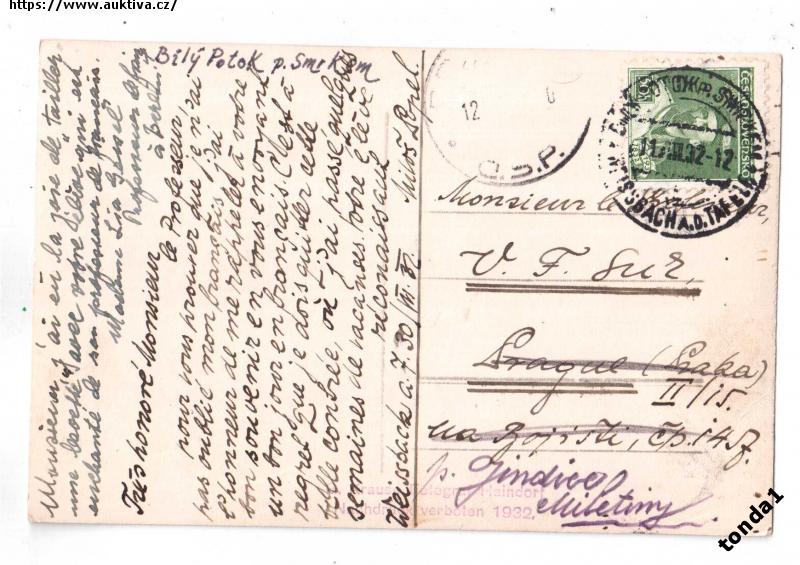 https://www.auktiva.cz/
Bílý Potok p. Smrkem
Monsieur j'ai eu la joie de tailler
une bavette avec votre élève qui est
enchanté de son professeur de français.
Madame Lia
Professeur
à Berlin
Très honoré Monsieur
le Professeur
pour vous prouver que je n'ai
pas oublié mon français, j'ai
l'honneur de me rappeler à votre
bon souvenir en vous envoyant
un bon jour en français. C'est à
regret que je dois quitter cette
belle contrée, où j'ai passé quelques
semaines de vacances. Votre élève
réconaissant
Weissbach a. T. 30/VII. 32. Miloš
12
O.S.P.
ČESKOSLOVENSKO
50
BÍLÝ POTOK P. SMRKEM
32-12
WEISSBACH A.D. TAFELFICHTE
Monsieur le
V. F. Suk,
Prague (Praha)
II/15.
na Bojišti, čp. 1457.
p. Jindico
Miletiny
Haindorf
Nachdruck verboten 1932.
tonda1